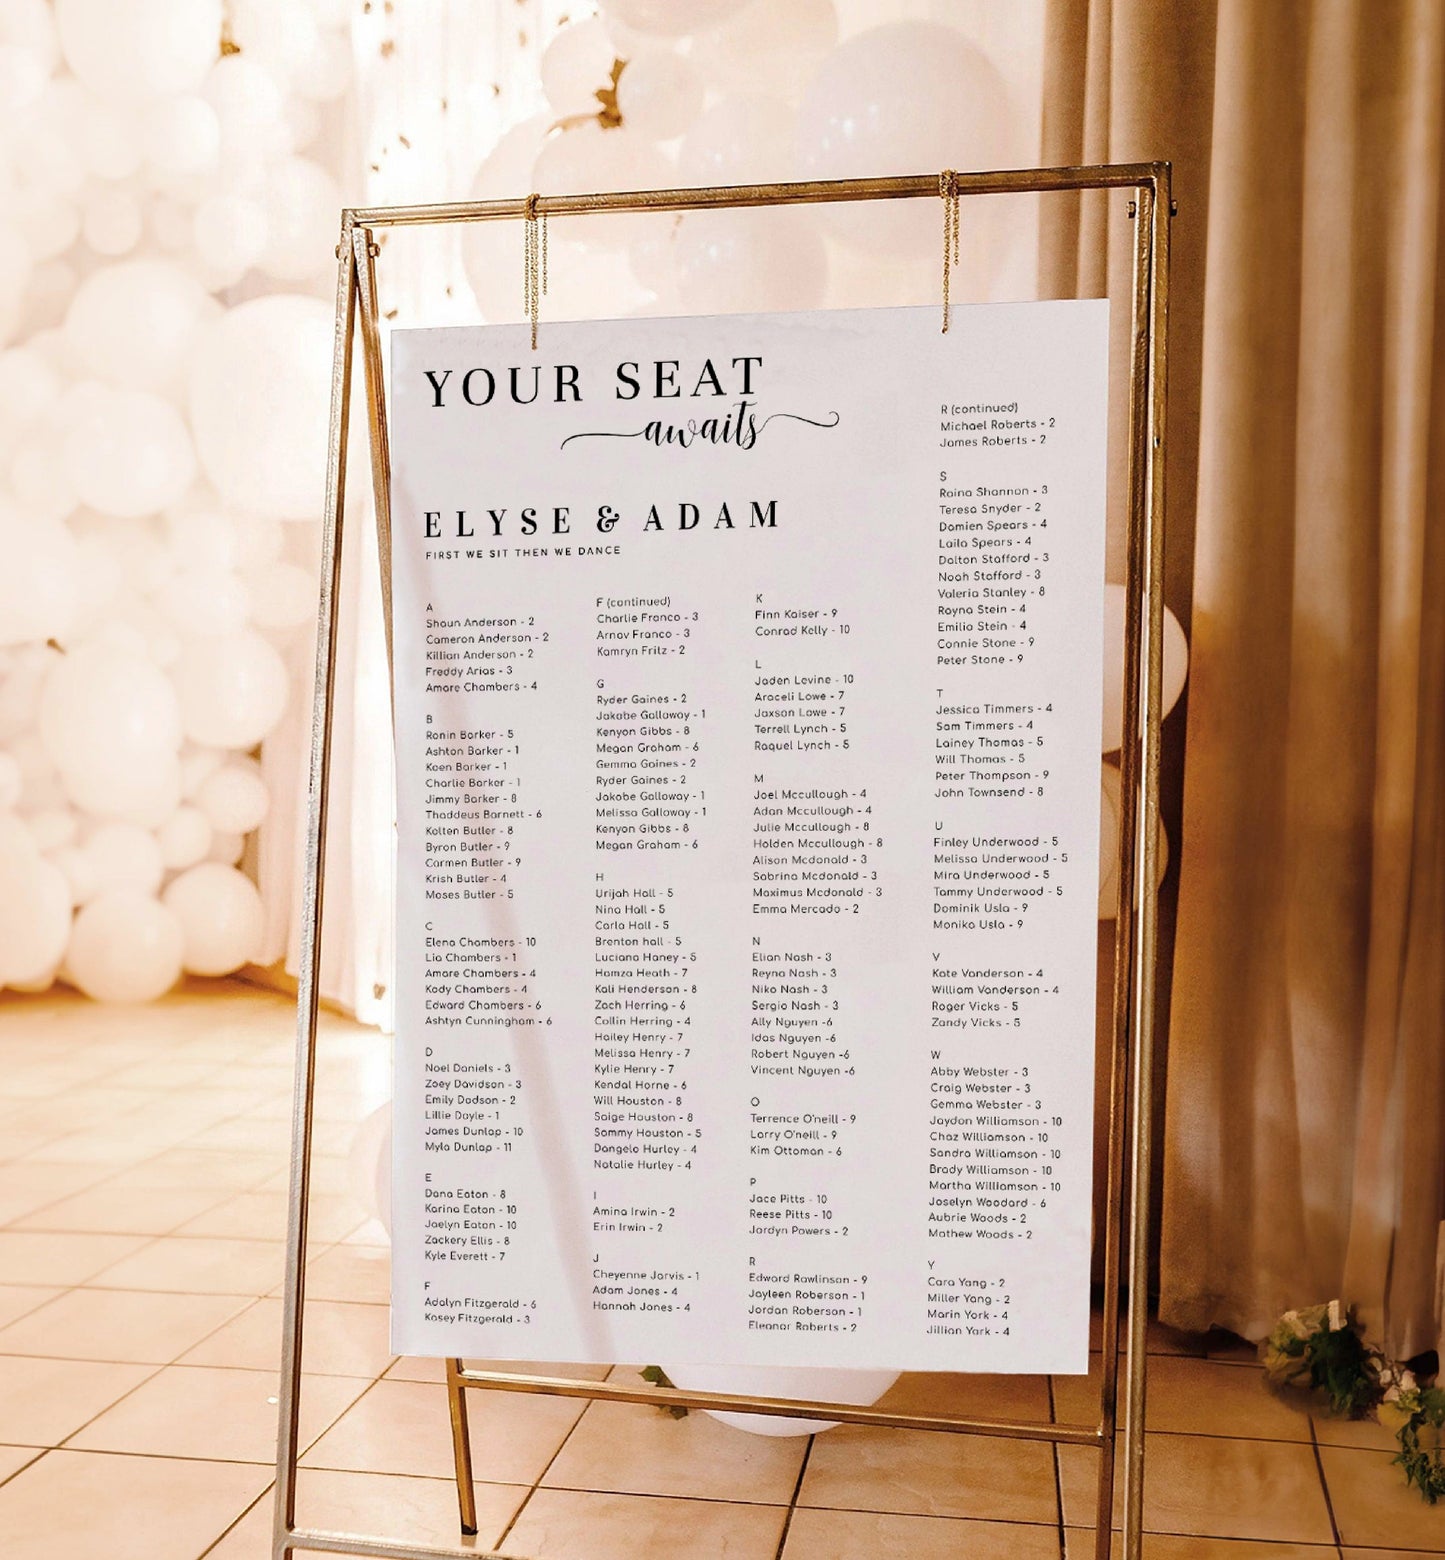 YOUR SEAT
awaits
ELYSE & ADAM
FIRST WE SIT THEN WE DANCE
A
Shaun Anderson - 2
Cameron Anderson - 2
Killian Anderson - 2
Freddy Arias - 3
Amare Chambers - 4
B
Ronin Barker - 5
Ashton Barker - 1
Koen Barker - 1
Charlie Barker - 1
Jimmy Barker - 8
Thaddeus Barnett - 6
Kolten Butler - 8
Byron Butler - 9
Carmen Butler - 9
Krish Butler - 4
Moses Butler - 5
C
Elena Chambers - 10
Lia Chambers - 1
Amare Chambers - 4
Kody Chambers - 4
Edward Chambers - 6
Ashtyn Cunningham - 6
D
Noel Daniels - 3
Zoey Davidson - 3
Emily Dodson - 2
Lillie Doyle - 1
James Dunlap - 10
Myla Dunlap - 11
E
Dana Eaton - 8
Karina Eaton - 10
Jaelyn Eaton - 10
Zackery Ellis - 8
Kyle Everett - 7
F
Adalyn Fitzgerald - 6
Kasey Fitzgerald - 3
F (continued)
Charlie Franco - 3
Arnav Franco - 3
Kamryn Fritz - 2
G
Ryder Gaines - 2
Jakobe Galloway - 1
Kenyon Gibbs - 8
Megan Graham - 6
Gemma Gaines - 2
Ryder Gaines - 2
Jakobe Galloway - 1
Melissa Galloway - 1
Kenyon Gibbs - 8
Megan Graham - 6
H
Urijah Hall - 5
Nina Hall - 5
Carla Hall - 5
Brenton hall - 5
Luciana Haney - 5
Hamza Heath - 7
Kali Henderson - 8
Zach Herring - 6
Collin Herring - 4
Hailey Henry - 7
Melissa Henry - 7
Kylie Henry - 7
Kendal Horne - 6
Will Houston - 8
Saige Houston - 8
Sammy Houston - 5
Dangelo Hurley - 4
Natalie Hurley - 4
I
Amina Irwin - 2
Erin Irwin - 2
J
Cheyenne Jarvis - 1
Adam Jones - 4
Hannah Jones - 4
K
Finn Kaiser - 9
Conrad Kelly - 10
L
Jaden Levine - 10
Araceli Lowe - 7
Jaxson Lowe - 7
Terrell Lynch - 5
Raquel Lynch - 5
M
Joel Mccullough - 4
Adan Mccullough - 4
Julie Mccullough - 8
Holden Mccullough - 8
Alison Mcdonald - 3
Sabrina Mcdonald - 3
Maximus Mcdonald - 3
Emma Mercado - 2
N
Elian Nash - 3
Reyna Nash - 3
Niko Nash - 3
Sergio Nash - 3
Ally Nguyen -6
Idas Nguyen -6
Robert Nguyen -6
Vincent Nguyen -6
O
Terrence O'neill - 9
Larry O'neill - 9
Kim Ottoman - 6
P
Jace Pitts - 10
Reese Pitts - 10
Jordyn Powers - 2
R
Edward Rawlinson - 9
Jayleen Roberson - 1
Jordan Roberson - 1
Eleanor Roberts - 2
R (continued)
Michael Roberts - 2
James Roberts - 2
S
Raina Shannon - 3
Teresa Snyder - 2
Damien Spears - 4
Laila Spears - 4
Dalton Stafford - 3
Noah Stafford - 3
Valeria Stanley - 8
Rayna Stein - 4
Emilia Stein - 4
Connie Stone - 9
Peter Stone - 9
T
Jessica Timmers - 4
Sam Timmers - 4
Lainey Thomas - 5
Will Thomas - 5
Peter Thompson - 9
John Townsend - 8
U
Finley Underwood - 5
Melissa Underwood - 5
Mira Underwood - 5
Tammy Underwood - 5
Dominik Usla - 9
Monika Usla - 9
V
Kate Vanderson - 4
William Vanderson - 4
Roger Vicks - 5
Zandy Vicks - 5
W
Abby Webster - 3
Craig Webster - 3
Gemma Webster - 3
Jaydon Williamson - 10
Chaz Williamson - 10
Sandra Williamson - 10
Brady Williamson - 10
Martha Williamson - 10
Joselyn Woodard - 6
Aubrie Woods - 2
Mathew Woods - 2
Y
Cara Yang - 2
Miller Yang - 2
Marin York - 4
Jillian York - 4